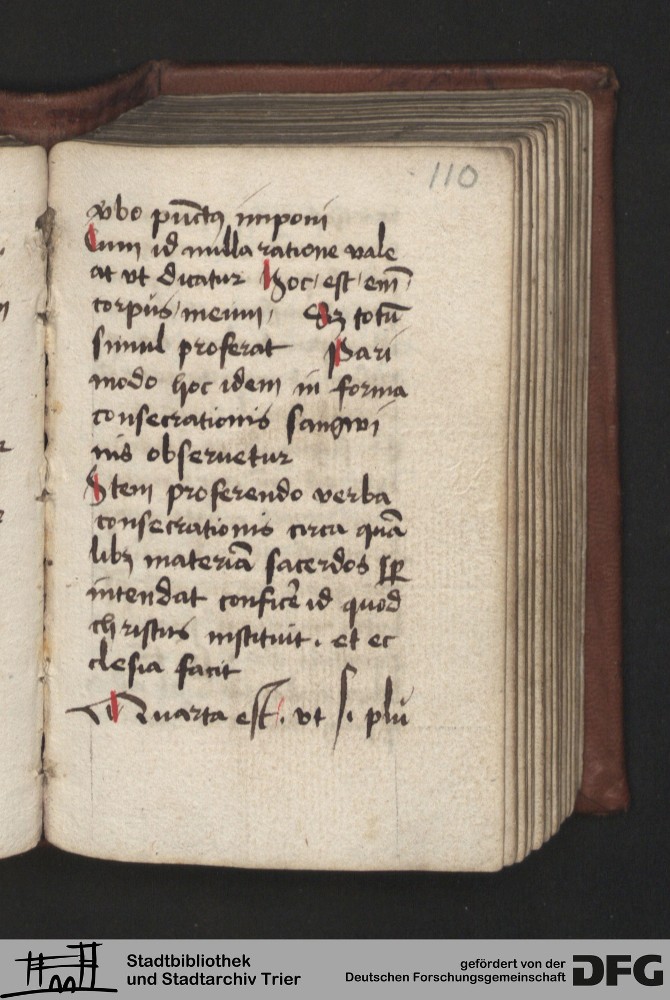 110
vbo pūctꝫ imponi
Cum id nulla ratione vale
at vt dicatur Hoc est em̄
corpus meum. Sꝫ totū
simul proferat Pari
modo hoc idem in forma
consecrationis sangwi
nis obseruetur
Item proferendo verba
consecrationis circa quā
libꝫ materiā sacerdos
intendat conficē id quod
christus instituit. et ec
clesia facit
Quarta est. vt si plu
Stadtbibliothek
und Stadtarchiv Trier
gefördert von der
Deutschen Forschungsgemeinschaft
DFG